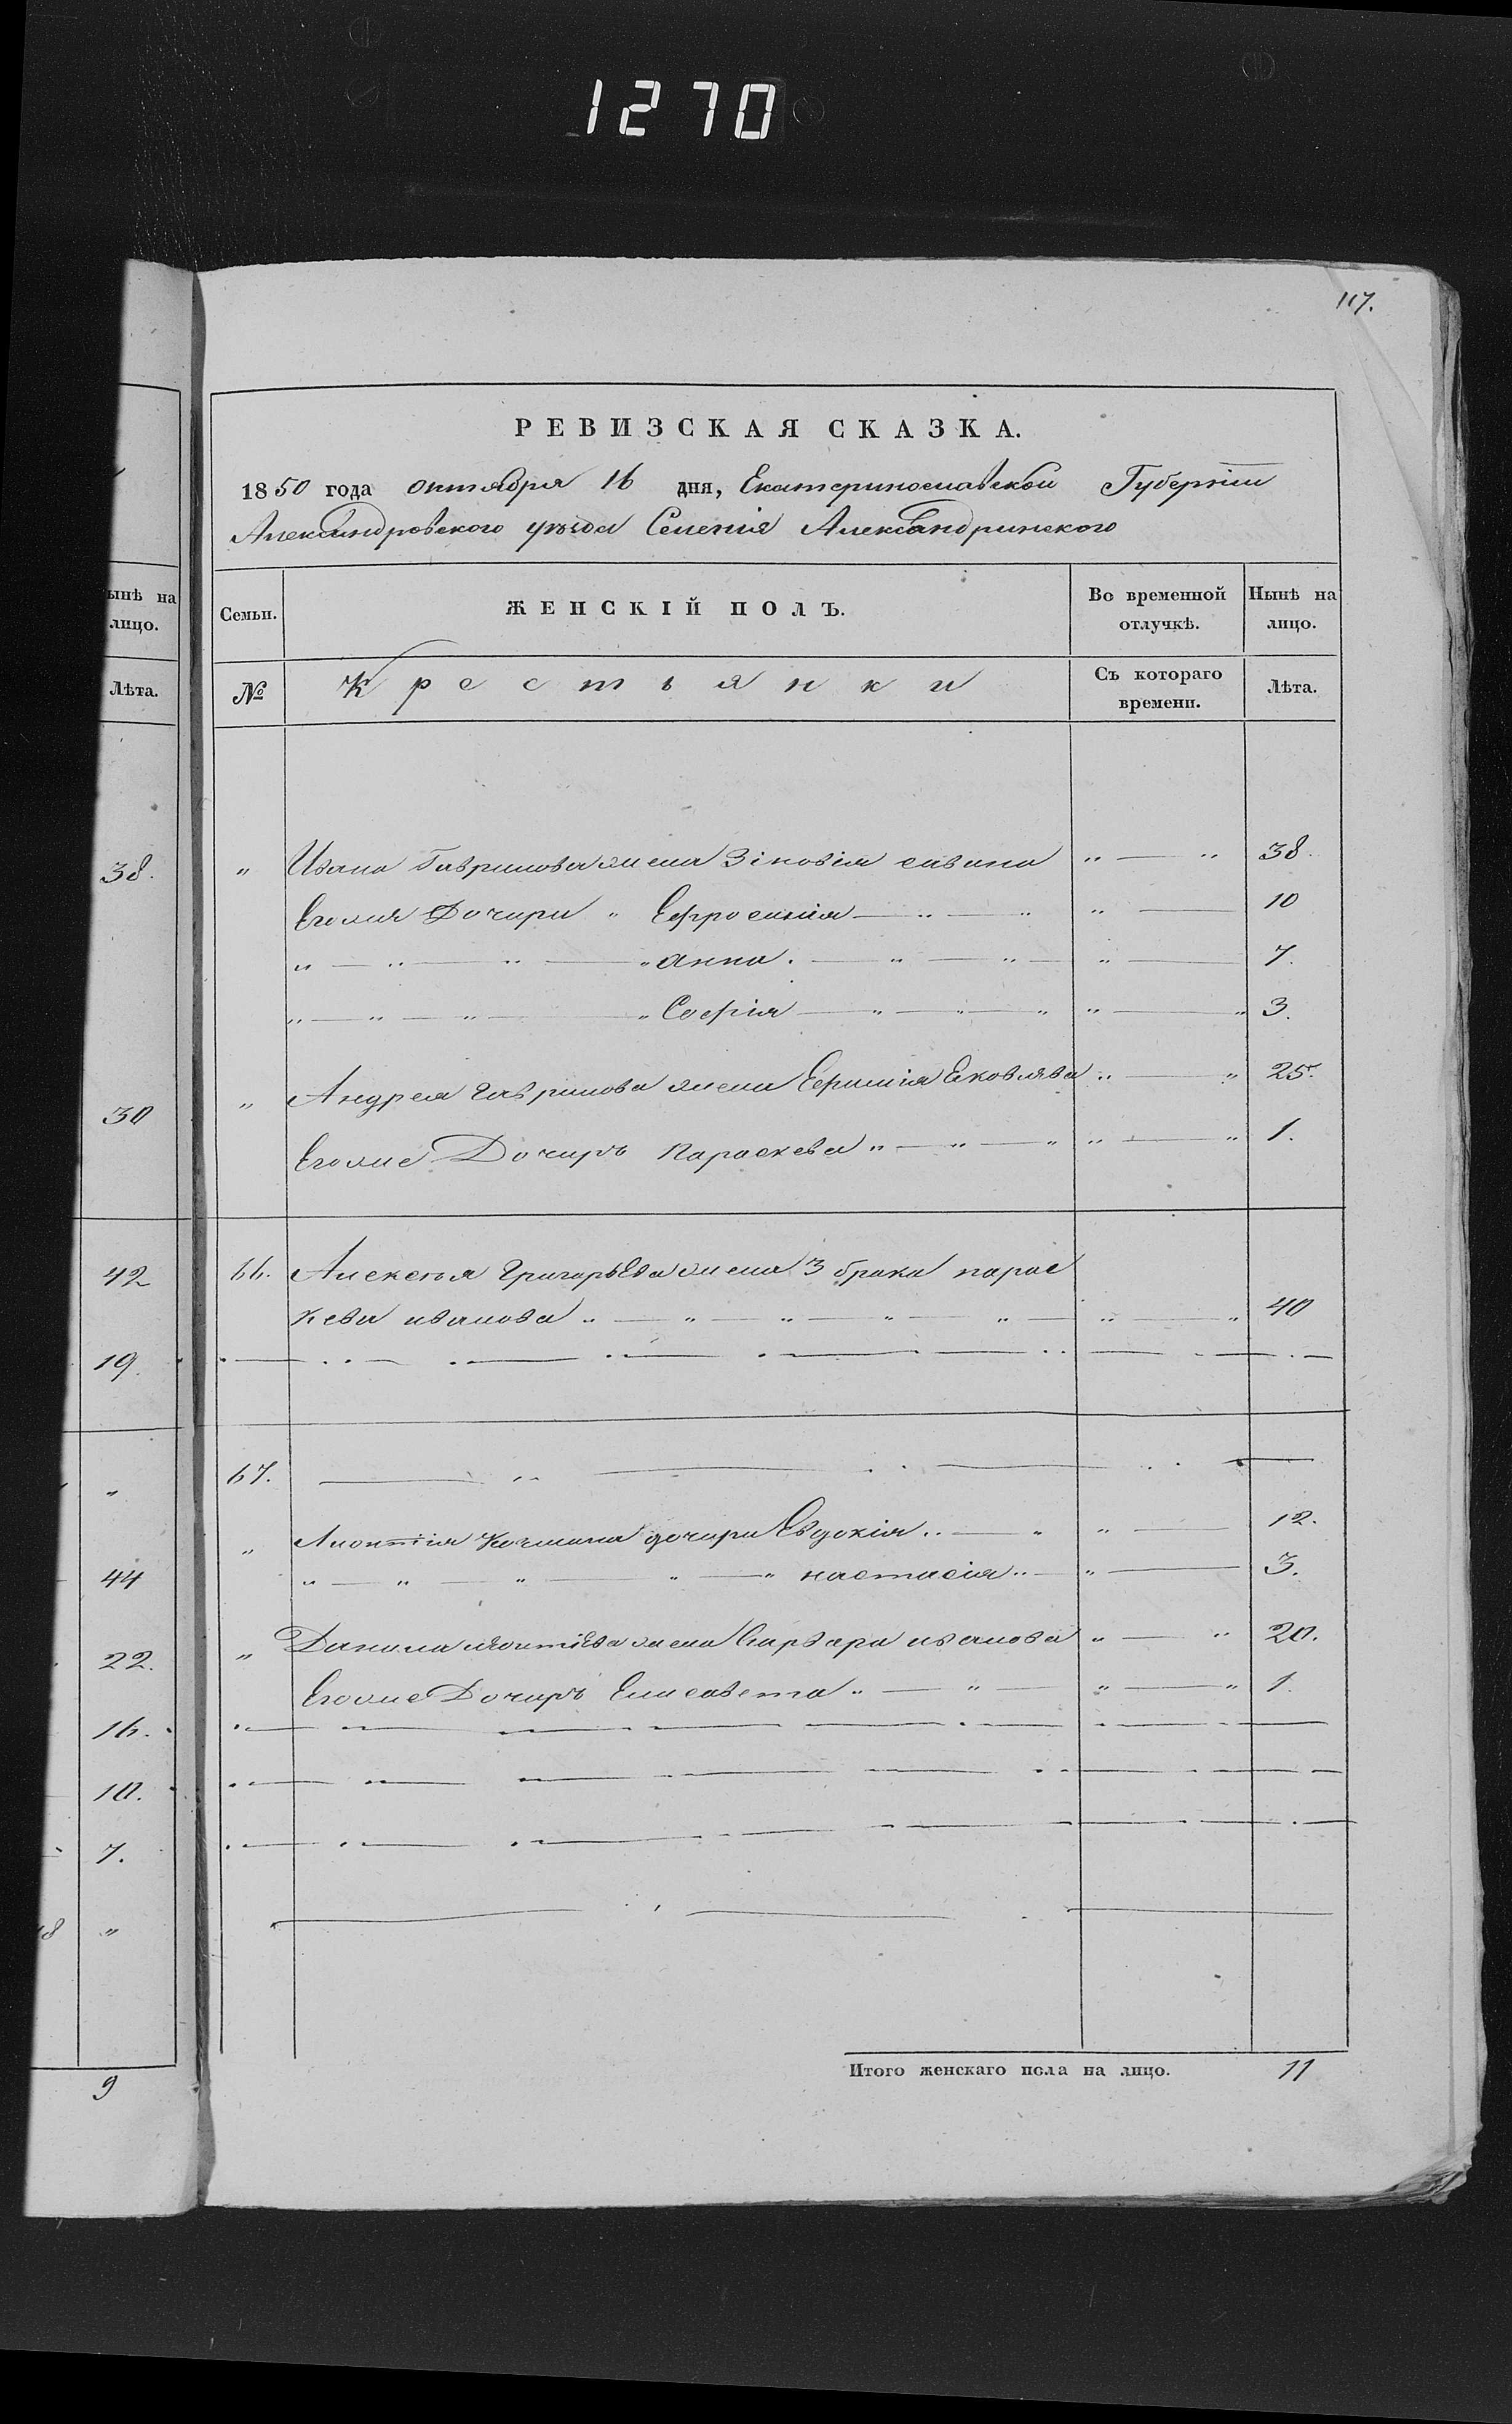 1270
117.
РЕВИЗСКАЯ СКАЗКА.
1850 года октября 16 дня, Екатеринославской Губернии
Александровского уезда Селения Александринского
ынѣ на лицо.
Лѣта.
Семьи. ЖЕНСКІЙ ПОЛЪ. Во временной отлучкѣ. Нынѣ на лицо.
№ Крестьянки Съ котораго времени. Лѣта.
38. " Ивана Гаврилова жена Зіновія савина " — " 38.
Егожя Дочири " Ефросинія — " — " " — 10
" — " — " — " анна. — " — " — " — 7.
" — " — " — " Софія — " — " — " " — " 3.
30 " Андрея Гаврилова жена Ефимія Яковлява " — " 25.
Егоже Дочирь Параскева " — " — " " — " 1.
42 66. Алексея Григорьева жена 3 брака парас
кева иванова " — " — " — " — " — " — " 40
19.
" 67.
" Лионтия дочири Евдокія " — " " — 12.
44 " — " — " — " — " настасія " — " — 3.
22. " Данила леонтіева жена Варвара иванова " — " 20.
Егоже Дочирь Елисавета " — " — " — " 1.
16.
10.
7.
18 "
9 Итого женскаго пола на лицо. 11